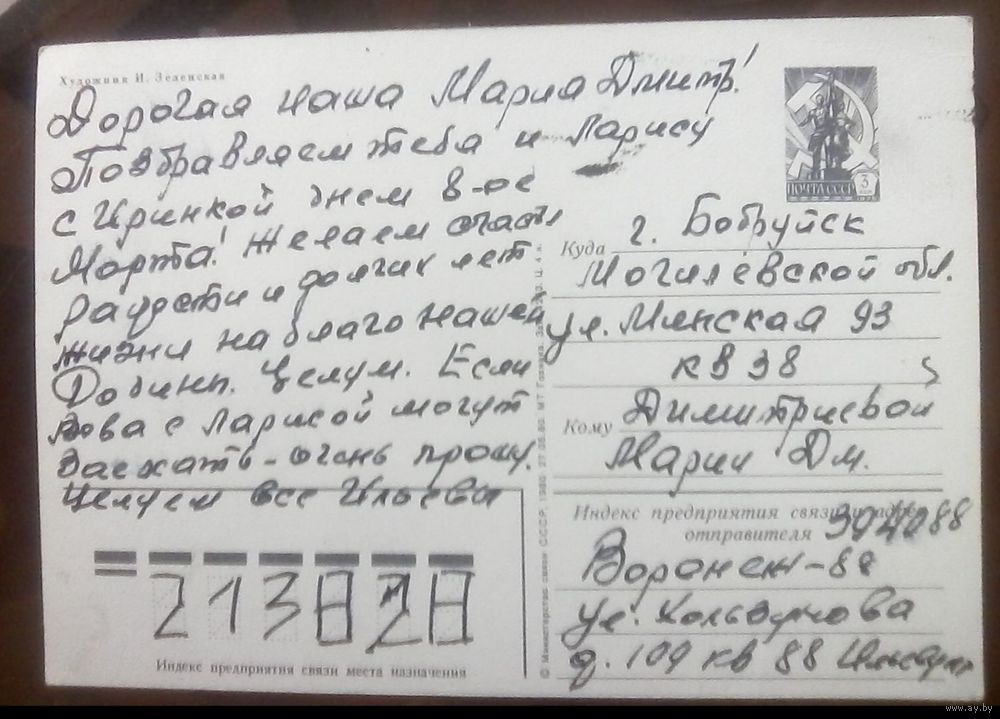 Художник И. Зеленская
Дорогая наша Мариа Дмитр!
Поздравляем тебя и Ларису
с Иринкой днем 8-ое
Марта! Желаем счастья
радости и долгих лет
жизни на благо нашей
Родины. Целум. Если
Вова с Ларисой могут
заехать - очень прошу.
Целуем все Ильевы
ПОЧТА СССР
3
Куда г. Бобруйск
Могилёвской обл.
ул. Минская 93
кв 38
Кому Димитриевой
Марии Дм.
Индекс предприятия связи и адрес
отправителя 394088
Воронеж-88
ул.
д. 109 кв 88
213828
Индекс предприятия связи места назначения
© Министерство связи СССР, 1980
www.ay.by